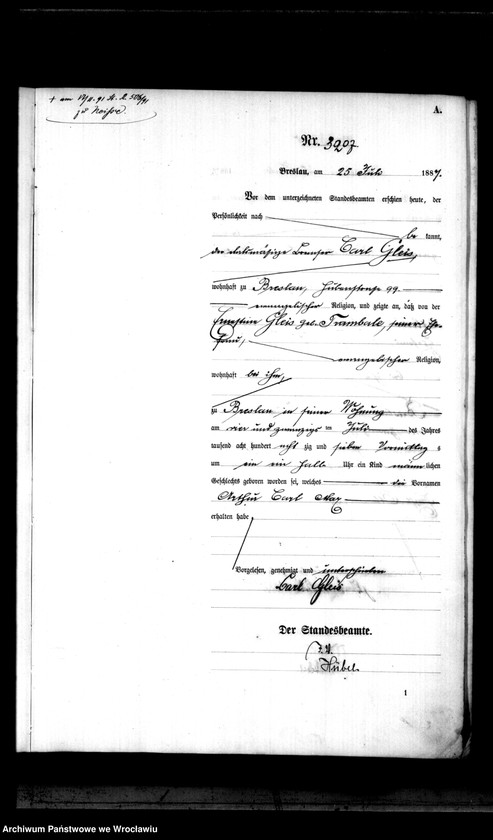 + am 12/11. 91 St. A. 506/91
zu Neisse.
A.
Nr. 3207
Breslau, am 25 Juli 1887.
Vor dem unterzeichneten Standesbeamten erschien heute, der
Persönlichkeit nach
be kannt,
der etatsmäßige Bremser Carl Gleis,
wohnhaft zu Breslau, Hubenstraße 99
evangelischer Religion, und zeigte an, daß von der
Ernestine Gleis geb. Trambale, seiner Ehe-
frau,
evangelischer Religion,
wohnhaft bei ihm,
zu Breslau in seiner Wohnung
am vier und zwanzigs ten Juli des Jahres
tausend acht hundert acht zig und sieben Vormittag s
um ein ein halb Uhr ein Kind männ lichen
Geschlechts geboren worden sei, welches die Vornamen
Arthur Carl Max
erhalten habe
Vorgelesen, genehmigt und unterschrieben
Carl Gleis
Der Standesbeamte.
J. V.
Hübel.
1
Archiwum Państwowe we Wrocławiu